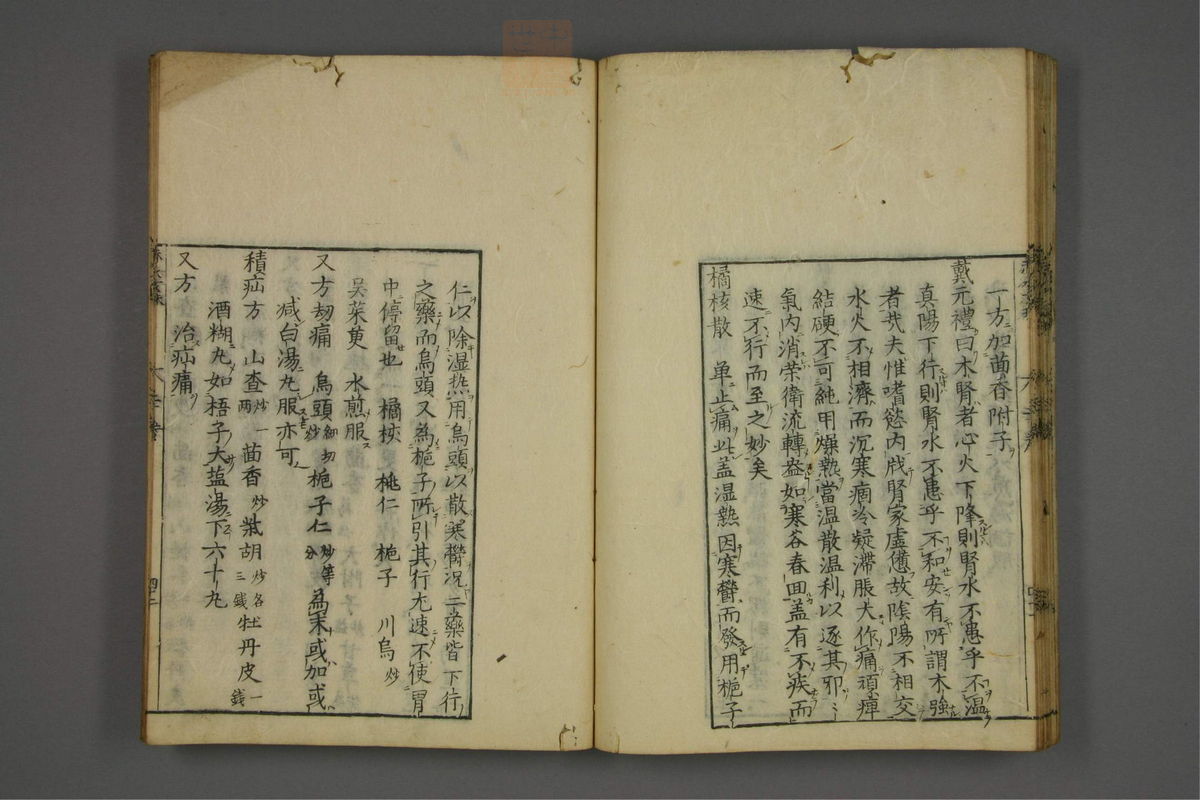 一方加茴香附子
戴元禮曰木腎者心火下降則腎水不患乎不温
真陽下行則腎水不患乎不和安有所謂木強
者哉夫惟嗜慾内戕腎家虚憊故陰陽不相交
水火不相濟而沉寒痼冷凝滞脹大作痛頑痺
結硬不可純用燥熱當温散温利以逐其邪〻
氣内消荣衛流轉盎如寒谷春回盖有不疾而
速不行而至之妙矣
橘核散　单止痛此盖湿熱因寒欝而發用梔子
仁以除湿热用烏頭以散寒欝况二藥皆下行
之藥而烏頭又為梔子所引其行尤速不使胃
中停留也　橘核　桃仁　梔子　川烏炒
吴茱萸　水煎服
又方劫痛　烏頭細切炒　梔子仁炒等分　為末或加或
减白湯丸服亦可
積疝方　山査炒一两　茴香炒　柴胡炒各三錢　牡丹皮一錢
酒糊丸如梧子大塩湯下六十丸
又方　治疝痛